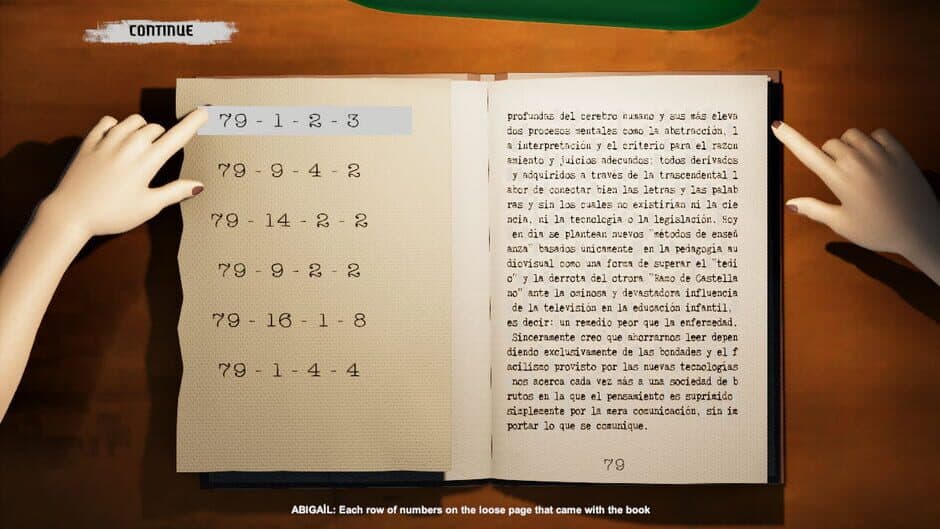 CONTINUE
79 - 1 - 2 - 3
79 - 9 - 4 - 2
79 - 14 - 2 - 2
79 - 9 - 2 - 2
79 - 16 - 1 - 8
79 - 1 - 4 - 4
profundas del cerebro humano y sus más eleva
dos procesos mentales como la abstracción, l
a interpretación y el criterio para el razon
amiento y juicios adecuados: todos derivados
y adquiridos a través de la trascendental l
abor de conectar bien las letras y las palab
ras y sin los cuales no existirían ni la cie
ncia, ni la tecnología o la legislación. Hoy
en día se plantean nuevos "métodos de enseñ
anza" basados unicamente en la pedagogía au
diovisual como una forma de superar el "tedi
o" y la derrota del otrora "Ramo de Castella
no" ante la ominosa y devastadora influencia
de la televisión en la educación infantil,
es decir: un remedio peor que la enfermedad.
Sinceramente creo que ahorrarnos leer depen
diendo exclusivamente de las bondades y el f
acilismo provisto por las nuevas tecnologías
nos acerca cada vez más a una sociedad de b
rutos en la que el pensamiento es suprimido
simplemente por la mera comunicación, sin im
portar lo que se comunique.
79
ABIGAÍL: Each row of numbers on the loose page that came with the book